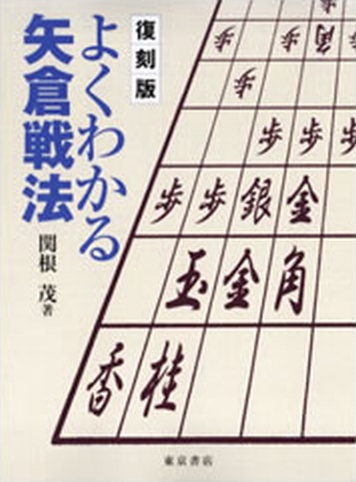 復刻版
よくわかる
矢倉戦法
関根 茂著
歩 歩 角 歩
歩 銀
歩 歩 歩
歩 歩 銀 金
玉 金 角
香 桂
東京書店